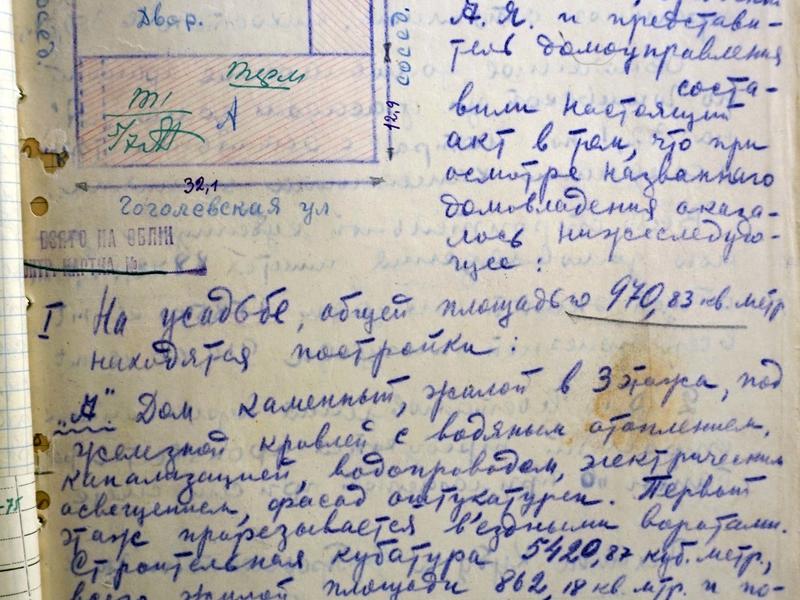 Двор.
сосед.
12,9
А
32,1
Гоголевская ул
ВЗЯТО НА
КАРТКА №
А. Я. и представи-
тель домоуправления
соста-
вили настоящий
акт в том, что при
осмотре названнаго
домовладения оказа-
лось нижеследую-
щее:
I На усадьбе, общей площадью 970,83 кв. метр
находятся постройки:
„А" Дом каменный, жилой в 3 этажа, под
железной кровлей с водяным отоплением,
канализацией, водопроводом, электрическим
освещением, фасад оштукатурен. Первый
этаж прорезывается въездными воротами.
Строительная кубатура 5420,87 куб. метр,
всего жилой площади 862,18 кв. мтр. и по-
-75